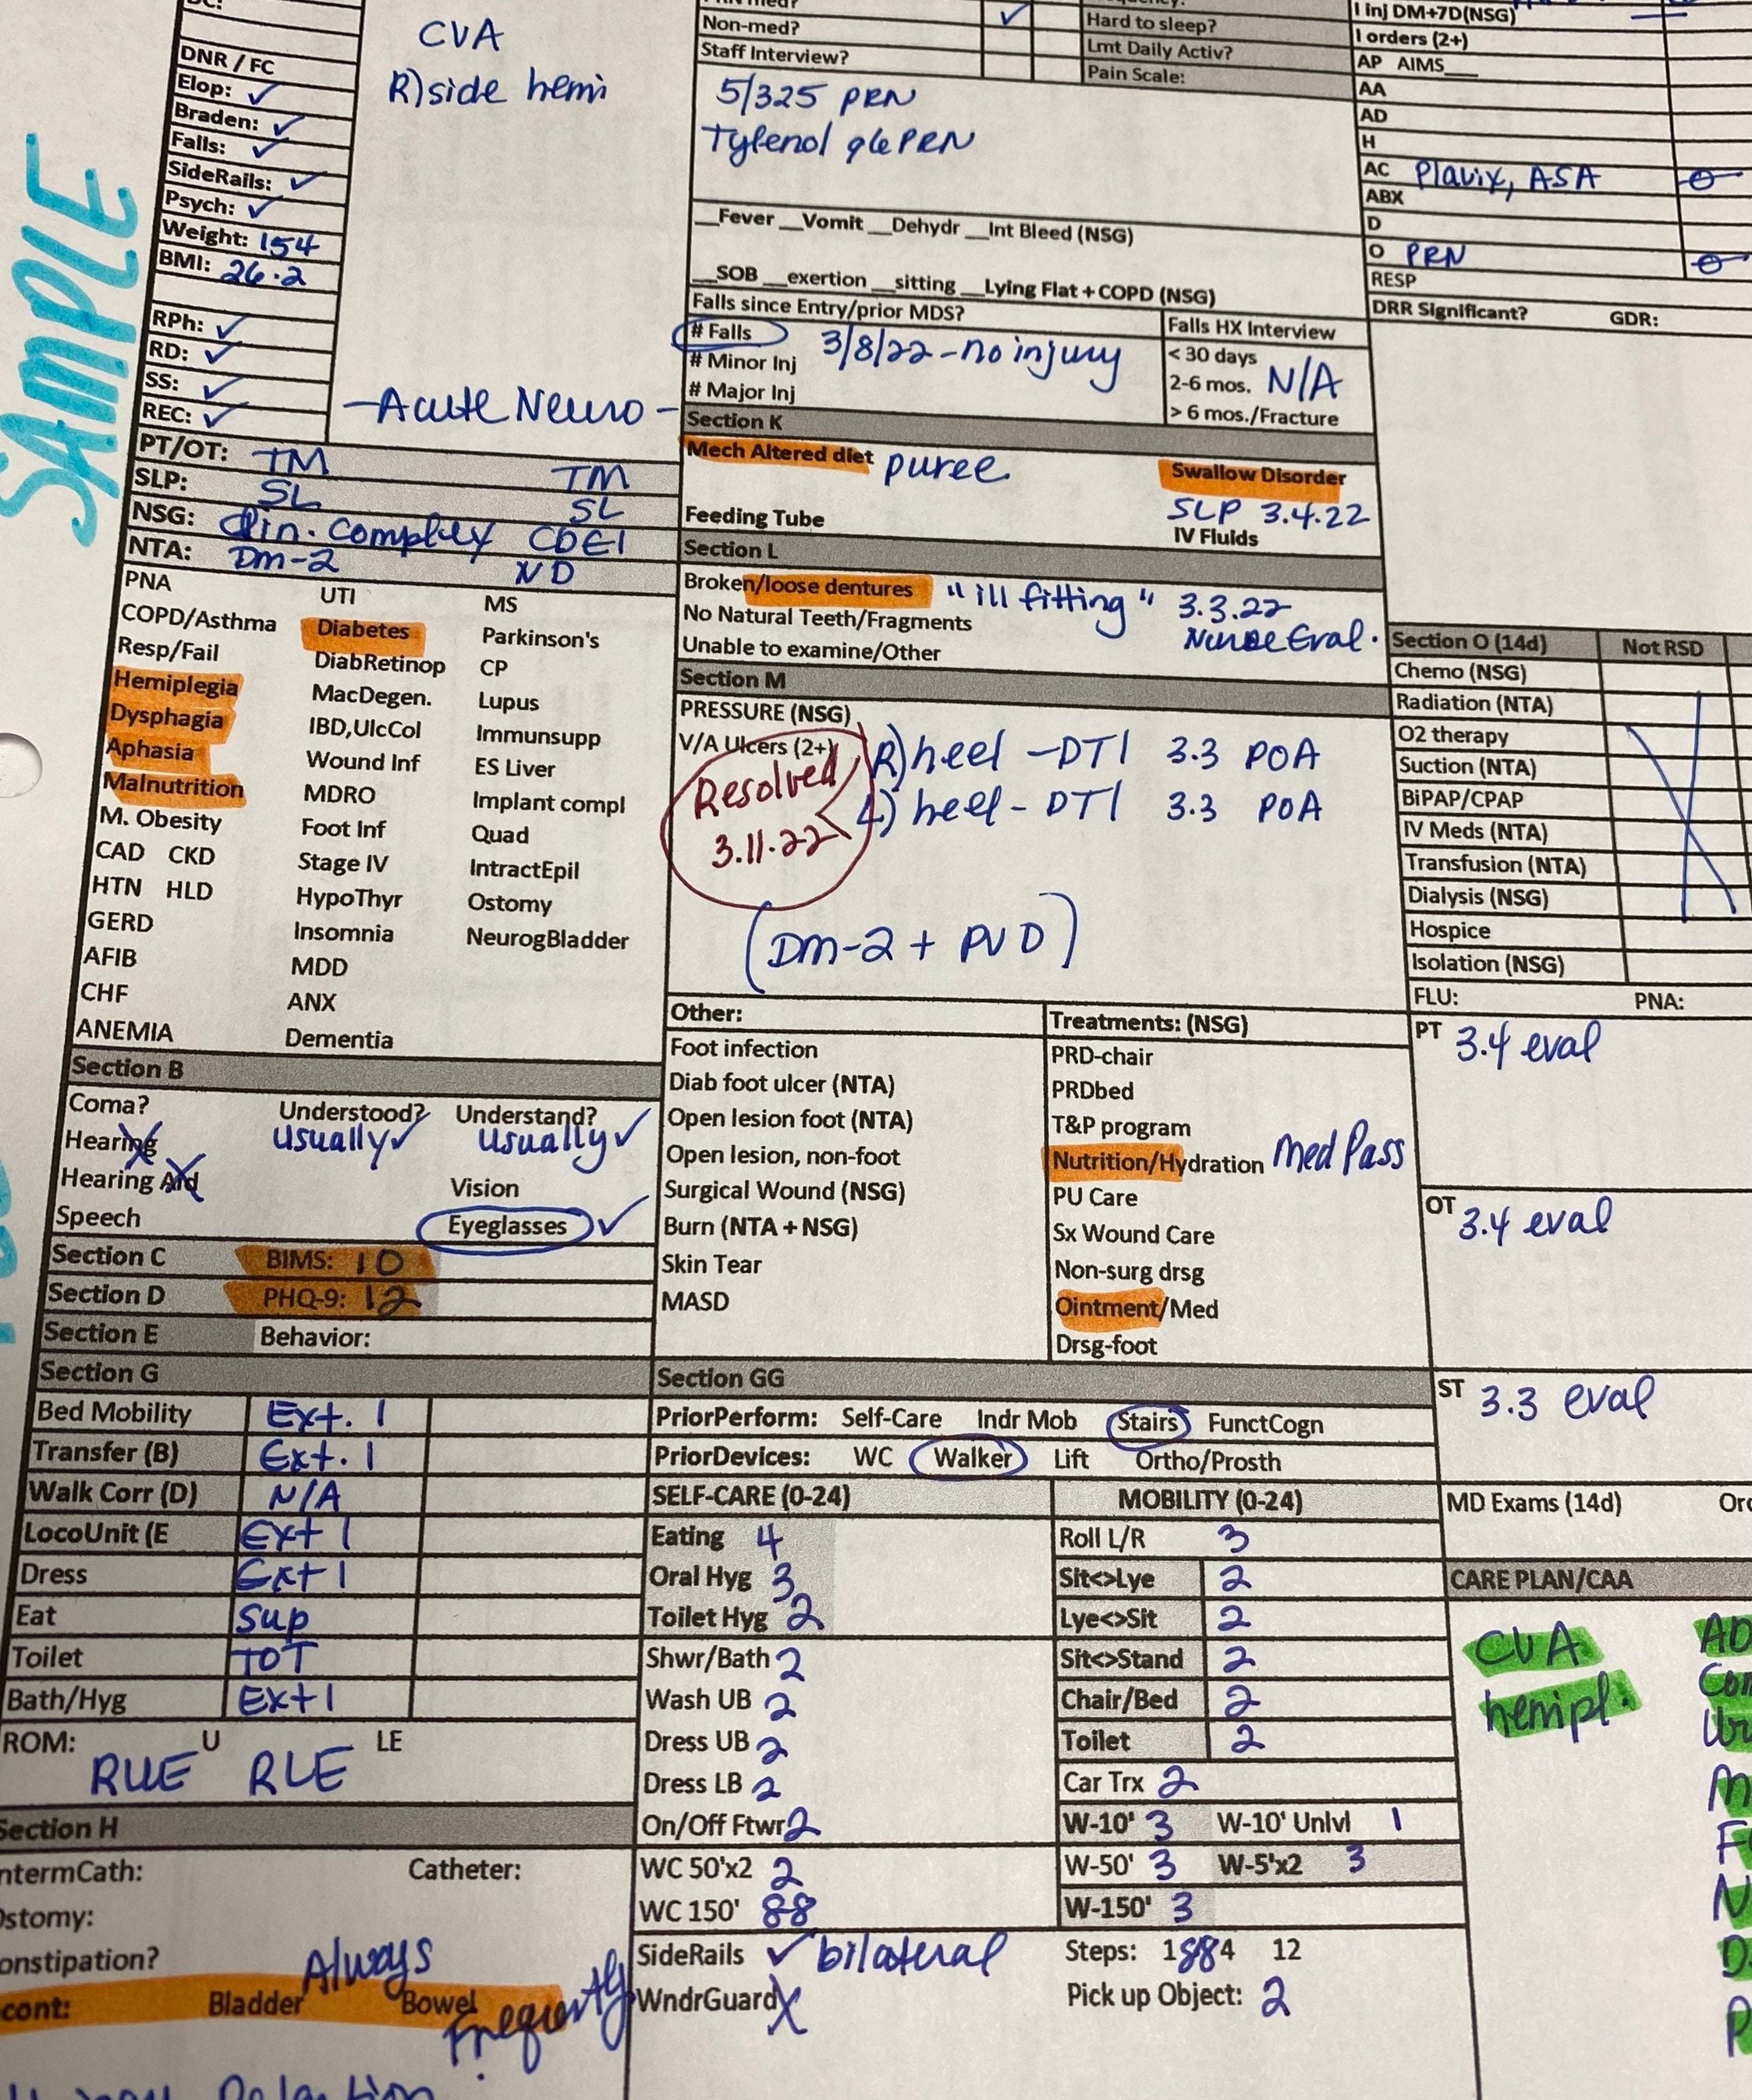 SAMPLE
DNR / FC
Elop: ✓
Braden: ✓
Falls: ✓
SideRails: ✓
Psych: ✓
Weight: 154
BMI: 26.2
RPh: ✓
RD: ✓
SS: ✓
REC: ✓
CVA
R) side hemi
-Acute Neuro-
PT/OT: TM TM
SLP: SL SL
NSG: Clin. Complex CDE1
NTA: Dm-2 ND
PNA UTI MS
COPD/Asthma Diabetes Parkinson's
Resp/Fail DiabRetinop CP
Hemiplegia MacDegen. Lupus
Dysphagia IBD,UlcCol Immunsupp
Aphasia Wound Inf ES Liver
Malnutrition MDRO Implant compl
M. Obesity Foot Inf Quad
CAD CKD Stage IV IntractEpil
HTN HLD HypoThyr Ostomy
GERD Insomnia NeurogBladder
AFIB MDD
CHF ANX
ANEMIA Dementia
Section B
Coma? Understood? Understand?
Hearing usually ✓ usually ✓
Hearing Aid Vision
Speech Eyeglasses ✓
Section C BIMS: 10
Section D PHQ-9: 12
Section E Behavior:
Section G
Bed Mobility Ext. 1
Transfer (B) Ext. 1
Walk Corr (D) N/A
LocoUnit (E Ext 1
Dress Ext 1
Eat Sup
Toilet TOT
Bath/Hyg Ext 1
ROM: U LE
RUE RLE
Section H
ntermCath: Catheter:
Ostomy:
onstipation?
Always
cont: Bladder Bowel
Frequently
Non-med? ✓
Staff Interview?
Hard to sleep?
Lmt Daily Activ?
Pain Scale:
5/325 PRN
Tylenol q6 PRN
__Fever __Vomit __Dehydr __Int Bleed (NSG)
__SOB __exertion __sitting __Lying Flat + COPD (NSG)
Falls since Entry/prior MDS?
# Falls 3/8/22 - no injury
# Minor Inj
# Major Inj
Falls HX Interview
< 30 days
2-6 mos. N/A
> 6 mos./Fracture
Section K
Mech Altered diet puree Swallow Disorder
SLP 3.4.22
Feeding Tube IV Fluids
Section L
Broken/loose dentures "ill fitting" 3.3.22
No Natural Teeth/Fragments Nurse Eval.
Unable to examine/Other
Section M
PRESSURE (NSG)
V/A Ulcers (2+) R) heel - DTI 3.3 POA
Resolved L) heel - DTI 3.3 POA
3.11.22
(Dm-2 + PVD)
Other:
Foot infection
Diab foot ulcer (NTA)
Open lesion foot (NTA)
Open lesion, non-foot
Surgical Wound (NSG)
Burn (NTA + NSG)
Skin Tear
MASD
Treatments: (NSG)
PRD-chair
PRDbed
T&P program
Nutrition/Hydration Med Pass
PU Care
Sx Wound Care
Non-surg drsg
Ointment/Med
Drsg-foot
Section GG
PriorPerform: Self-Care Indr Mob Stairs FunctCogn
PriorDevices: WC Walker Lift Ortho/Prosth
SELF-CARE (0-24)
Eating 4
Oral Hyg 3
Toilet Hyg 2
Shwr/Bath 2
Wash UB 2
Dress UB 2
Dress LB 2
On/Off Ftwr 2
WC 50'x2 2
WC 150' 88
SideRails ✓ bilateral
WndrGuard X
MOBILITY (0-24)
Roll L/R 3
Sit<>Lye 2
Lye<>Sit 2
Sit<>Stand 2
Chair/Bed 2
Toilet 2
Car Trx 2
W-10' 3 W-10' Unlvl 1
W-50' 3 W-5'x2 3
W-150' 3
Steps: 1 88 4 12
Pick up Object: 2
I inj DM+7D(NSG)
I orders (2+)
AP AIMS___
AA
AD
H
AC Plavix, ASA
ABX
D
O PRN
RESP
DRR Significant? GDR:
Section O (14d) Not RSD
Chemo (NSG)
Radiation (NTA)
O2 therapy
Suction (NTA)
BiPAP/CPAP
IV Meds (NTA)
Transfusion (NTA)
Dialysis (NSG)
Hospice
Isolation (NSG)
FLU: PNA:
PT 3.4 eval
OT 3.4 eval
ST 3.3 eval
MD Exams (14d)
CARE PLAN/CAA
CVA
hemipl.